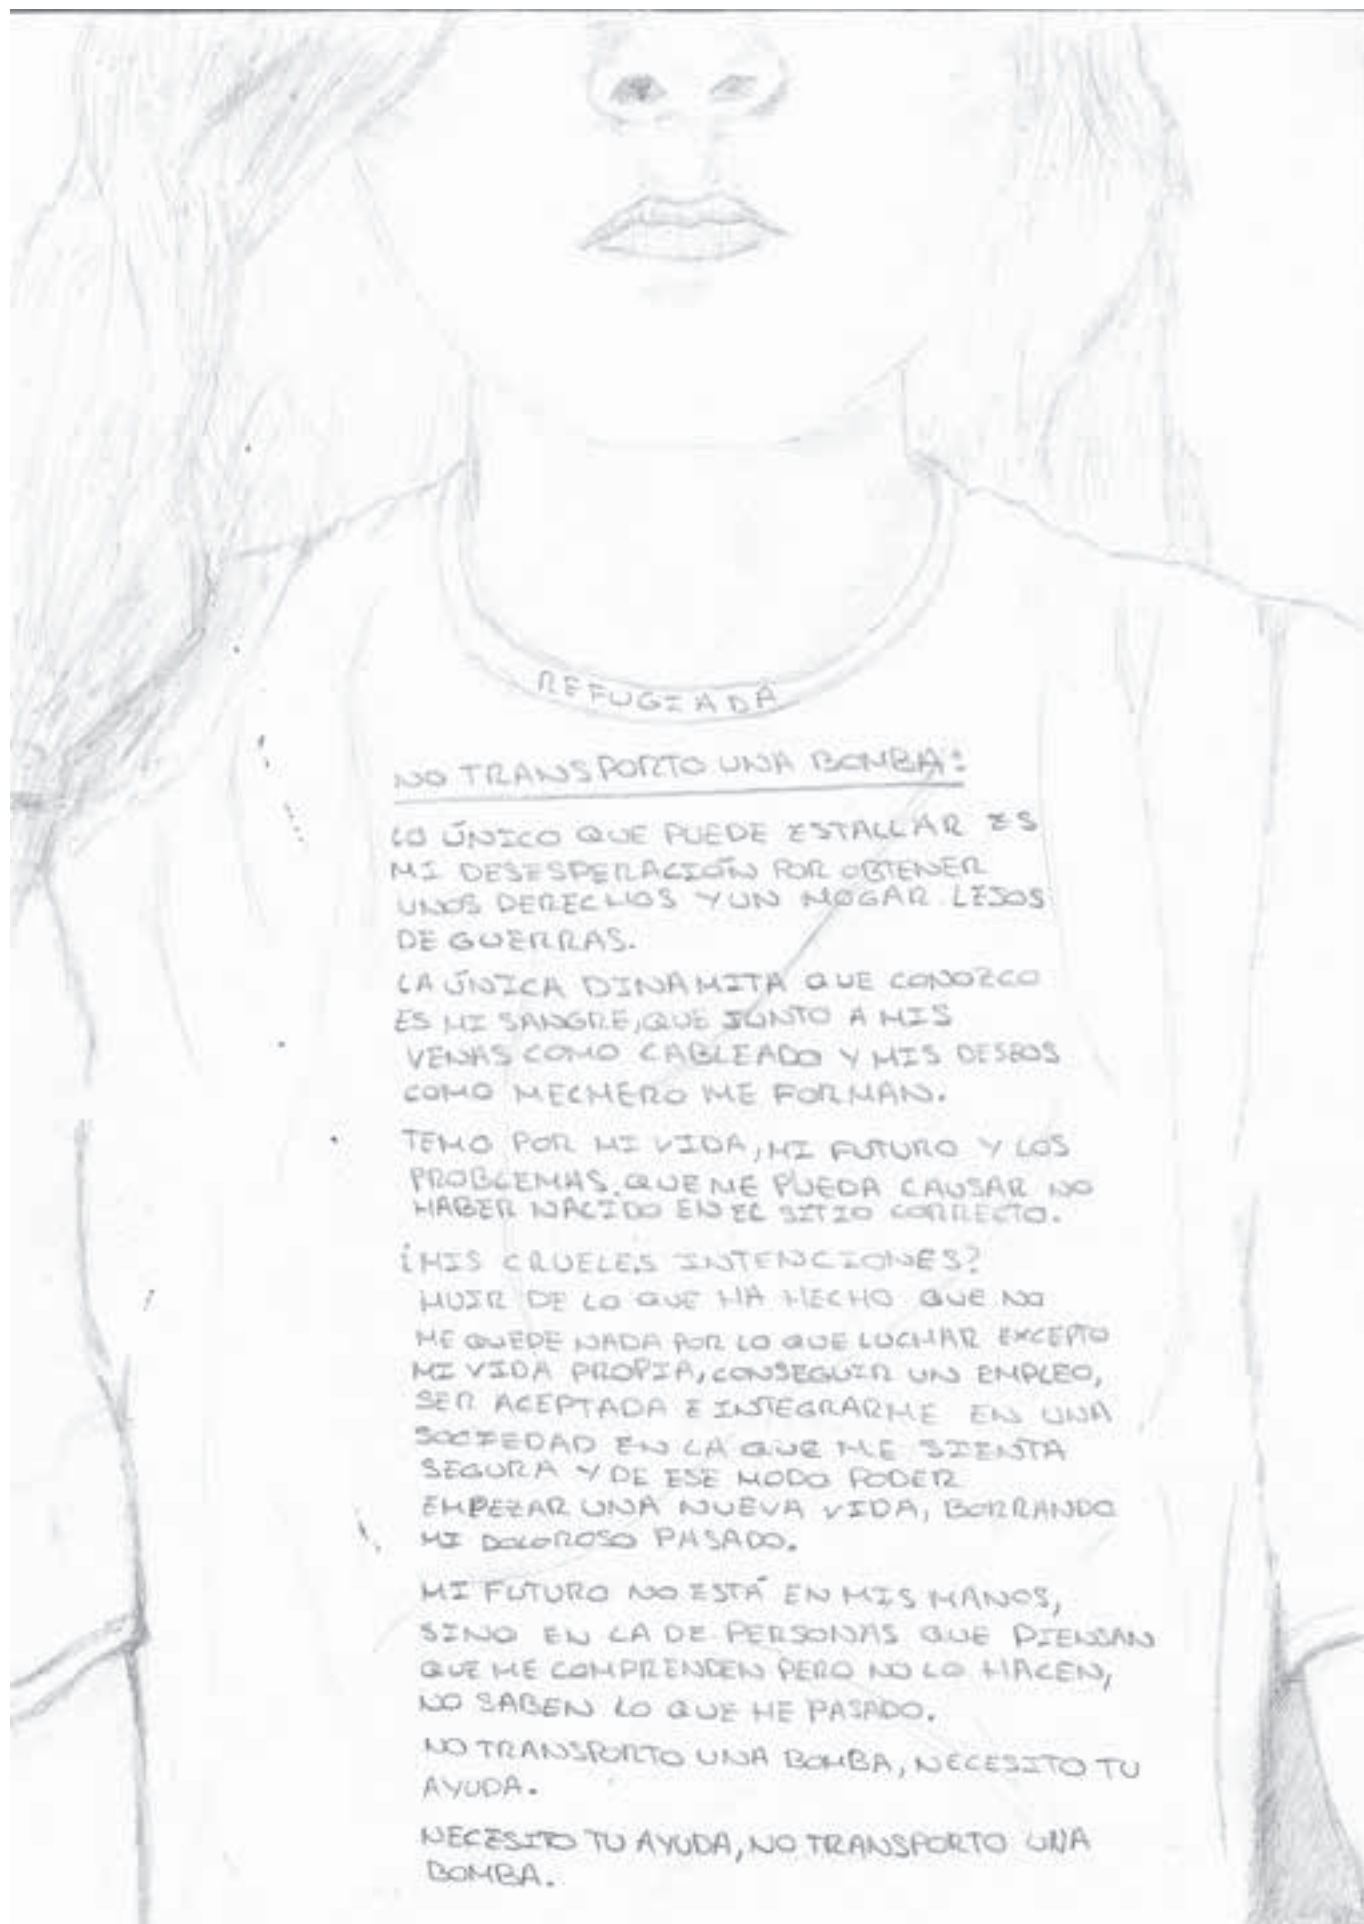 REFUGIADA
NO TRANSPORTO UNA BOMBA:
LO ÚNICO QUE PUEDE ESTALLAR ES
MI DESESPERACIÓN POR OBTENER
UNOS DERECHOS Y UN HOGAR LEJOS
DE GUERRAS.
LA ÚNICA DINAMITA QUE CONOZCO
ES MI SANGRE, QUE JUNTO A MIS
VENAS COMO CABLEADO Y MIS DESEOS
COMO MECHERO ME FORMAN.
TEMO POR MI VIDA, MI FUTURO Y LOS
PROBLEMAS QUE ME PUEDA CAUSAR NO
HABER NACIDO EN EL SITIO CORRECTO.
¿MIS CRUELES INTENCIONES?
HUIR DE LO QUE HA HECHO QUE NO
ME QUEDE NADA POR LO QUE LUCHAR EXCEPTO
MI VIDA PROPIA, CONSEGUIR UN EMPLEO,
SER ACEPTADA E INTEGRARME EN UNA
SOCIEDAD EN LA QUE ME SIENTA
SEGURA Y DE ESE MODO PODER
EMPEZAR UNA NUEVA VIDA, BORRANDO
MI DOLOROSO PASADO.
MI FUTURO NO ESTÁ EN MIS MANOS,
SINO EN LA DE PERSONAS QUE PIENSAN
QUE ME COMPRENDEN PERO NO LO HACEN,
NO SABEN LO QUE HE PASADO.
NO TRANSPORTO UNA BOMBA, NECESITO TU
AYUDA.
NECESITO TU AYUDA, NO TRANSPORTO UNA
BOMBA.